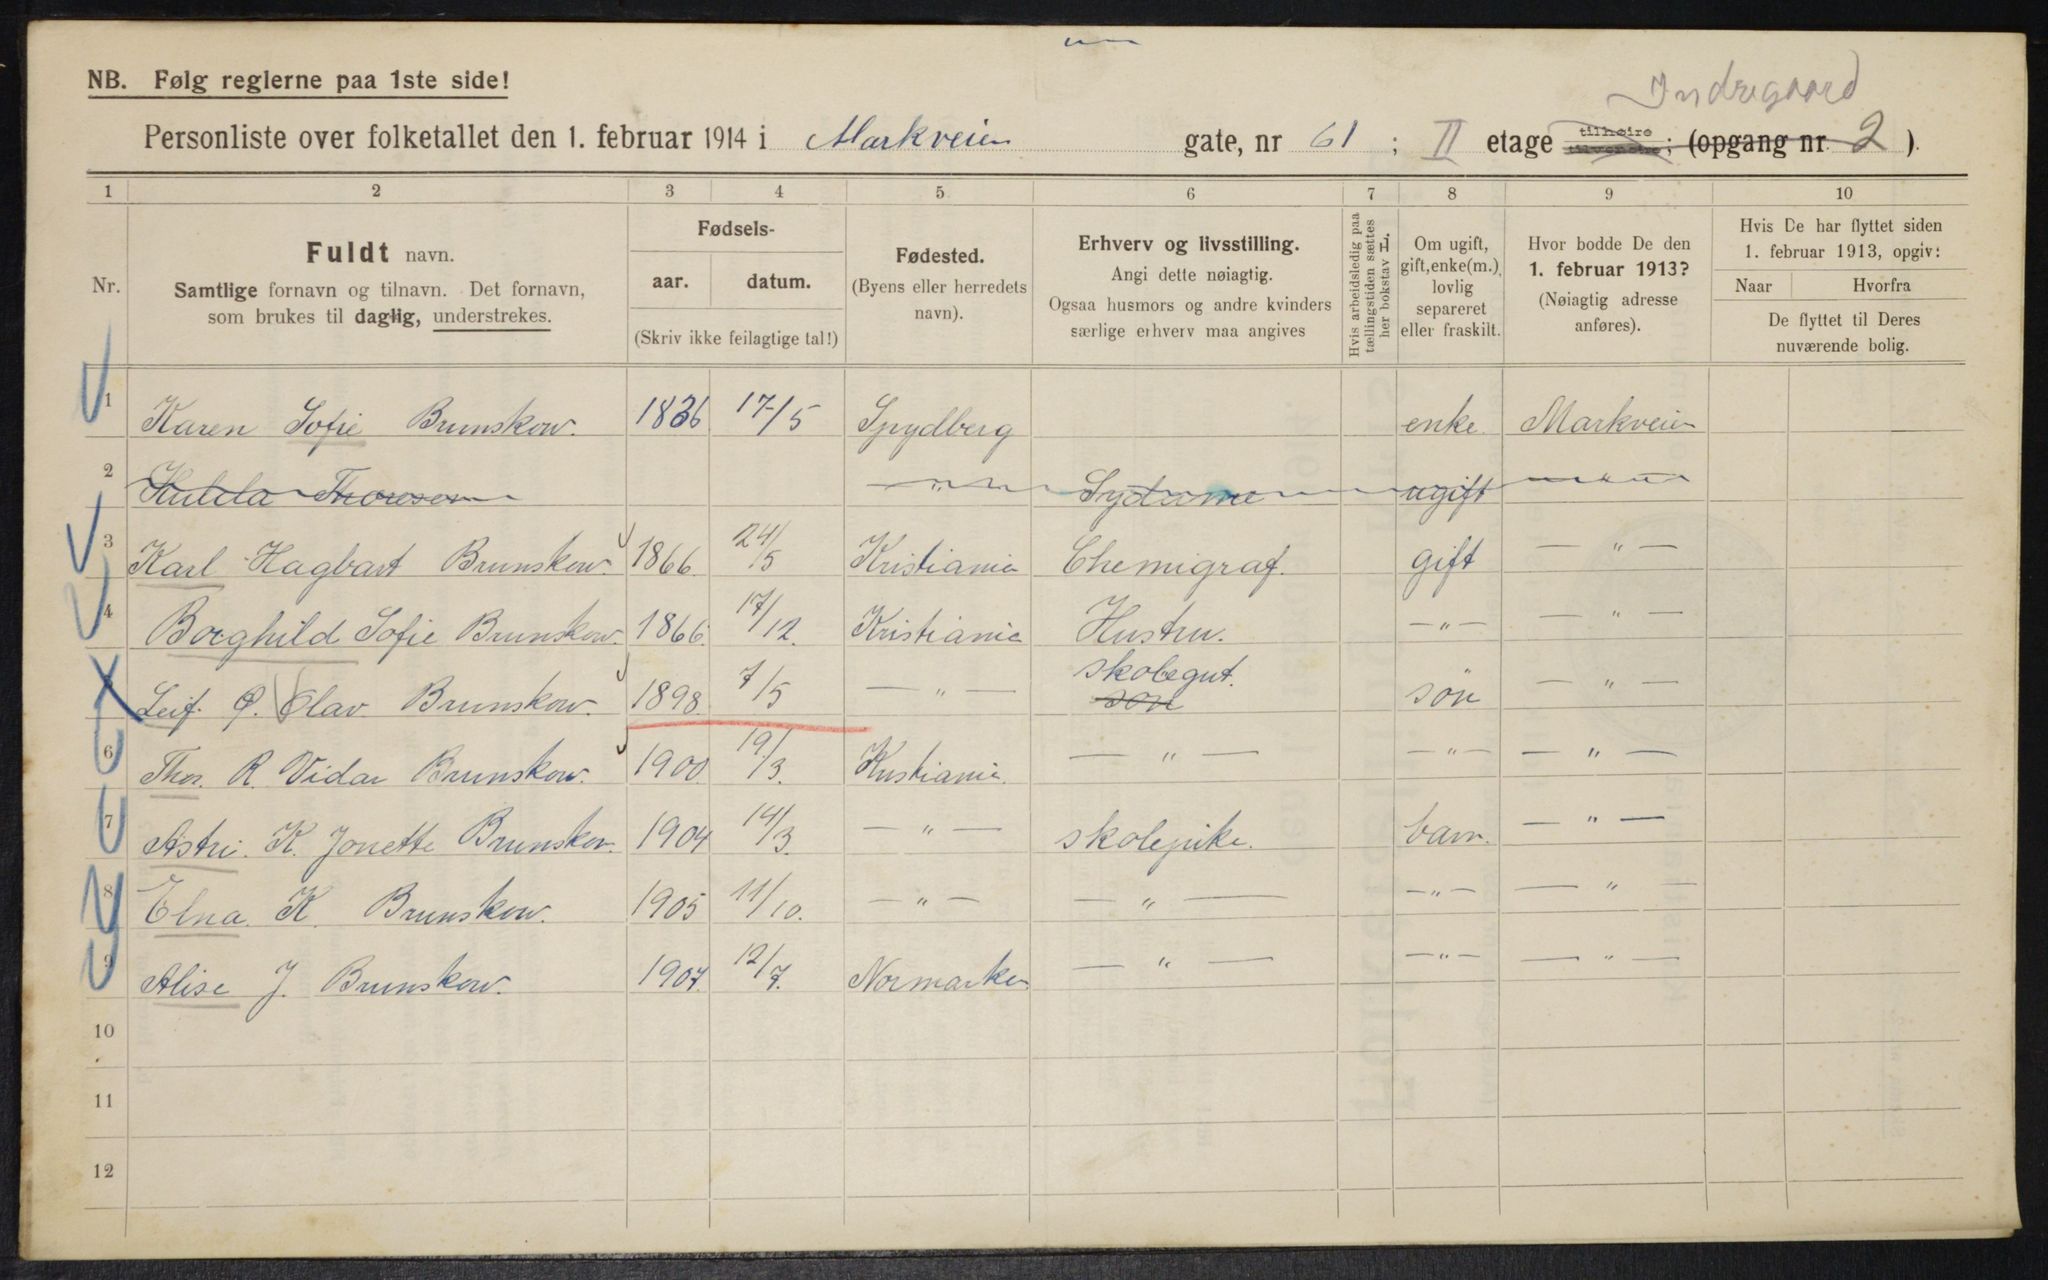 NB. Følg reglerne paa 1ste side!
Indregaard
Personliste over folketallet den 1. februar 1914 i Markveien gate, nr 61; II etage tilhøire tilvenstre; (opgang nr. 2).
1 2 3 4 5 6 7 8 9 10
Nr.
Fuldt navn.
Samtlige fornavn og tilnavn. Det fornavn,
som brukes til daglig, understrekes.
Fødsels-
aar. datum.
(Skriv ikke feilagtige tal!)
Fødested.
(Byens eller herredets
navn).
Erhverv og livsstilling.
Angi dette nøiagtig.
Ogsaa husmors og andre kvinders
særlige erhverv maa angives
Hvis arbeidsledig paa
tællingstiden sættes
her bokstav L.
Om ugift,
gift, enke(m.),
lovlig
separeret
eller fraskilt.
Hvor bodde De den
1. februar 1913?
(Nøiagtig adresse
anføres).
Hvis De har flyttet siden
1. februar 1913, opgiv:
Naar Hvorfra
De flyttet til Deres
nuværende bolig.
1 Karen Sofie Brunskow. 1836 17/5 Spydberg enke Markveien
2 Hulda Thoresen — " — ugift
3 Karl Hagbart Brunskow. 1866. 24/5 Kristiania Chemigraf. gift — " —
4 Borghild Sofie Brunskow. 1866 17/12. Kristiania Hustru. — " — — " —
Leif. Ø. Olav Brunskow. 1898 7/5 — " — skolegut. søn søn — " —
6 Thor. R. Vidar Brunskow. 1900 19/3. Kristiania. — " — — " — — " —
7 Astri. K. Jonette Brunskow. 1904 14/3. — " — skolepike. barn. — " —
8 Elna K. Brunskow. 1905 11/10. — " — — " — — " — — " —
9 Alise J. Brunskow. 1907. 12/7. Normarken — " — — " — — " —
10
11
12